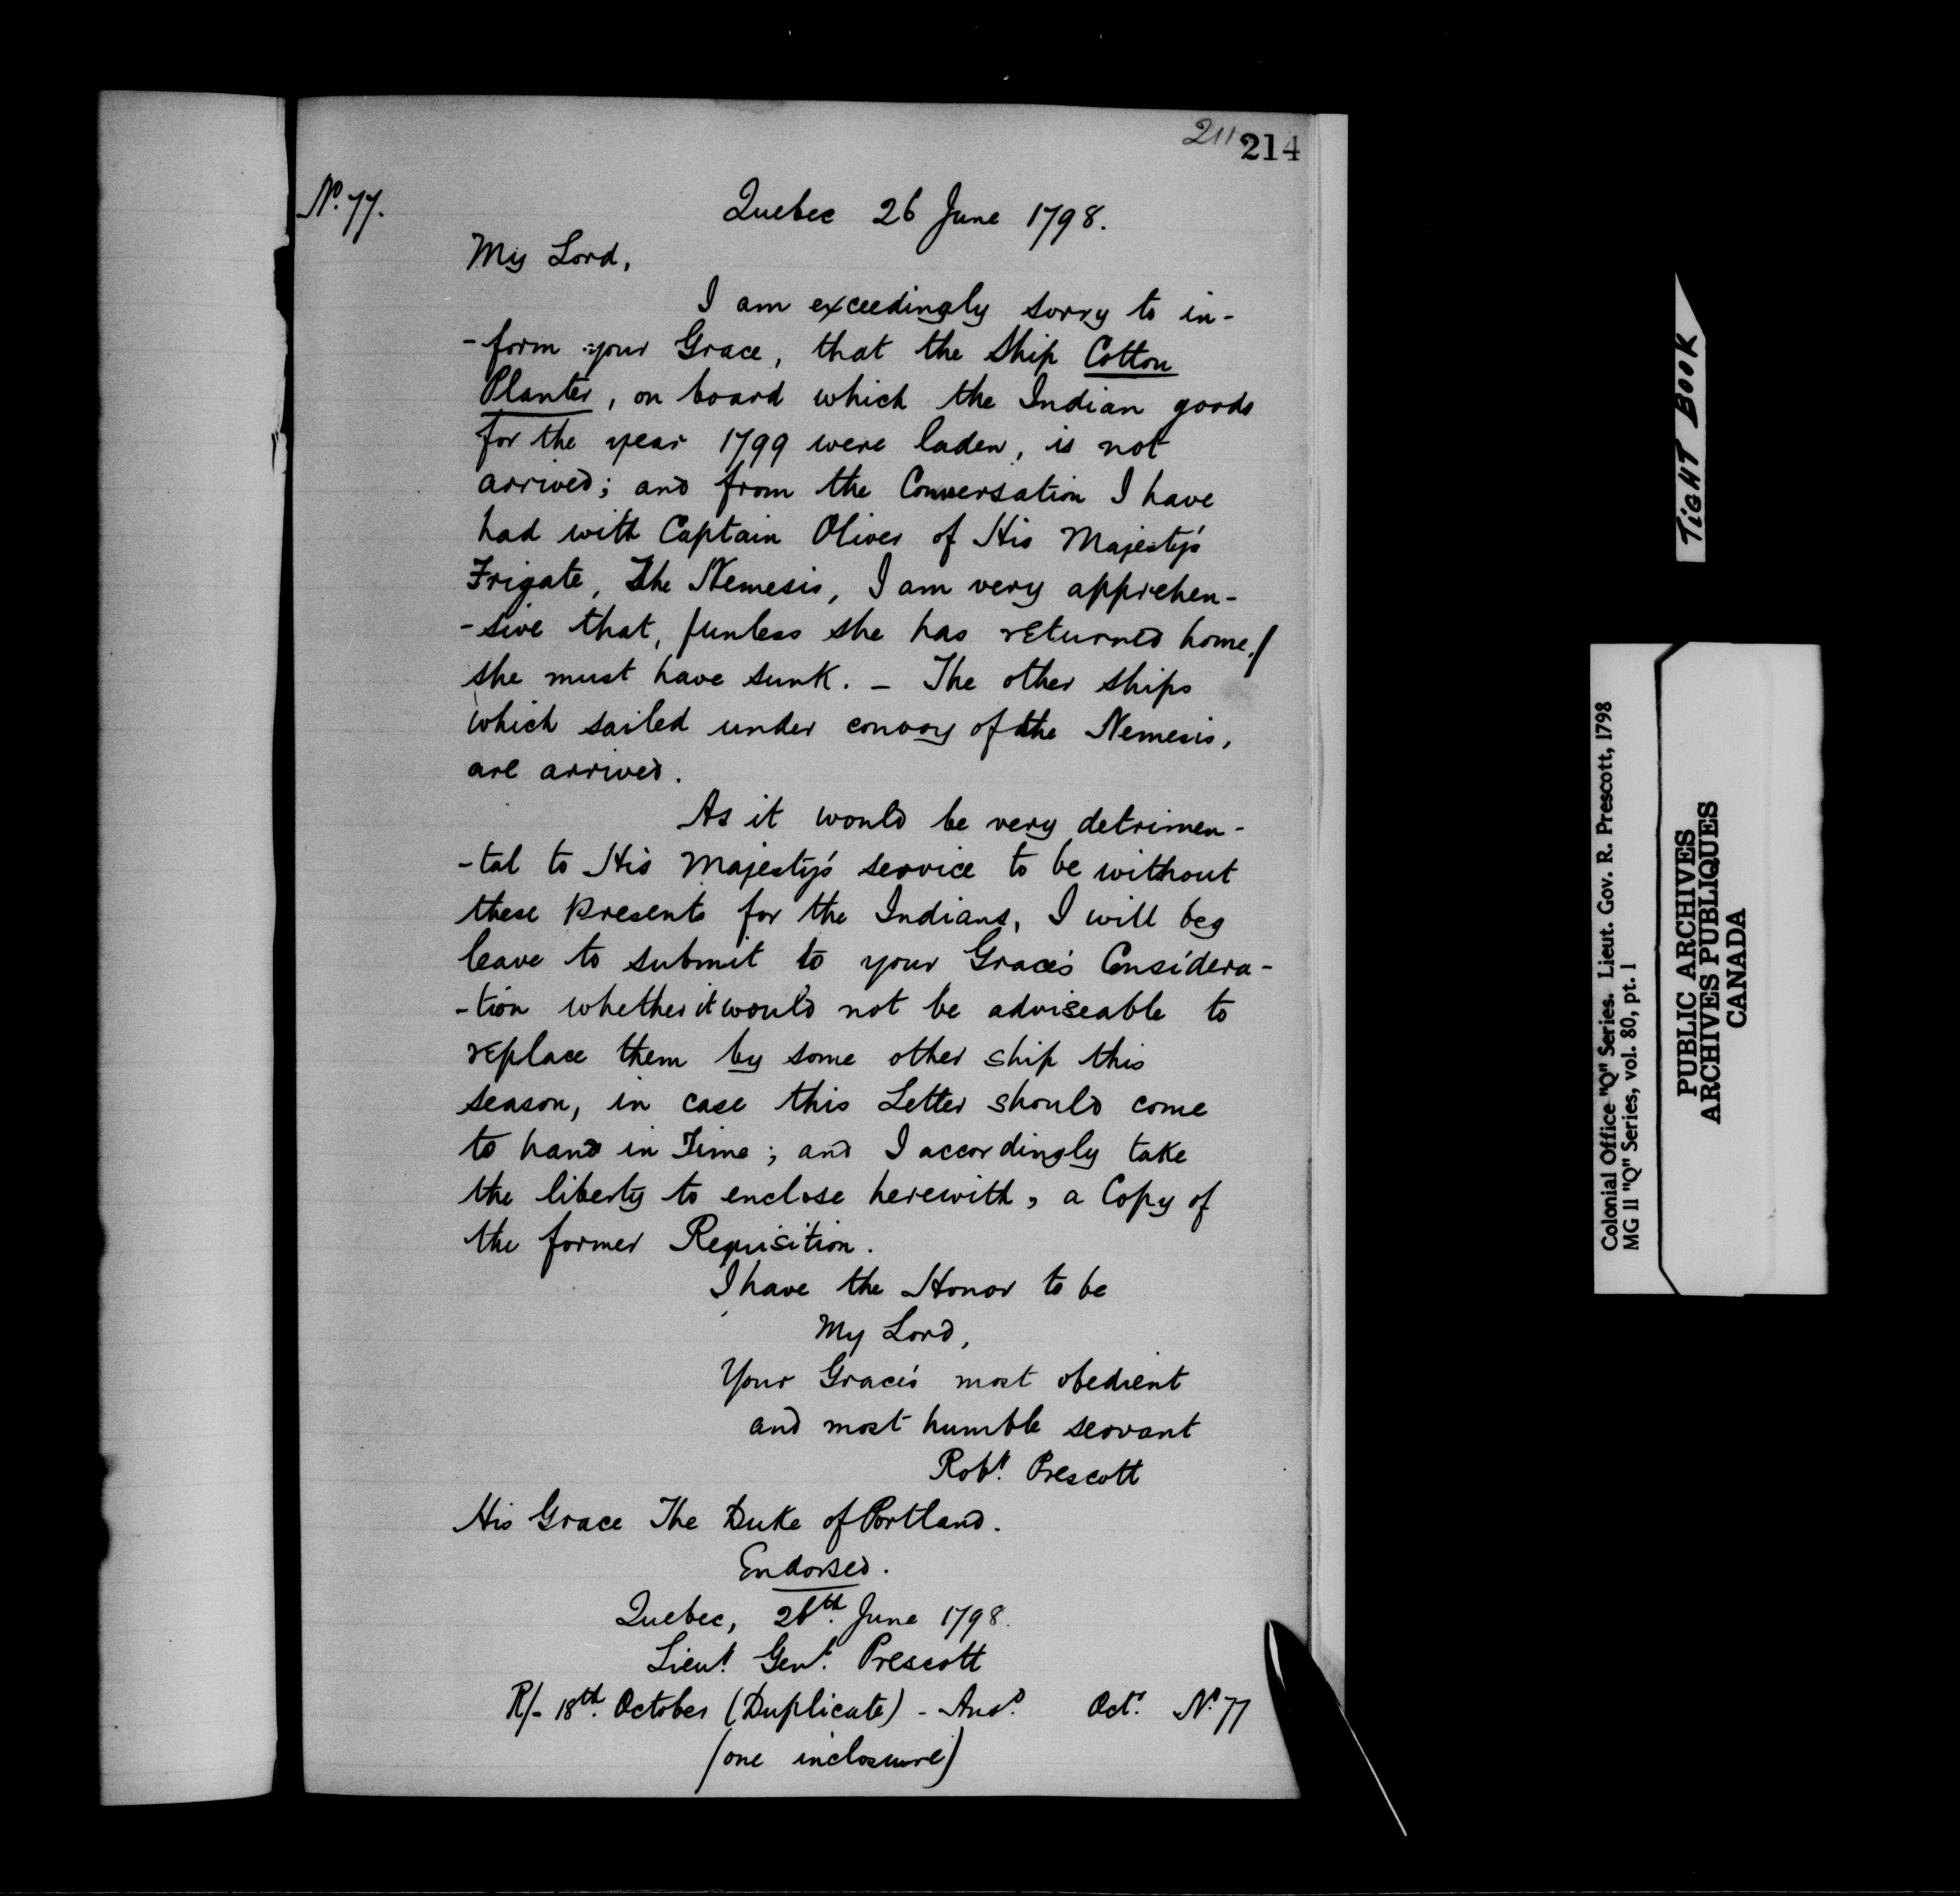 211 214
No. 77.
Quebec 26 June 1798.
My Lord,
I am exceedingly sorry to in-
-form your Grace, that the Ship Cotton
Planter, on board which the Indian goods
for the year 1799 were laden, is not
arrived; and from the Conversation I have
had with Captain Oliver of His Majesty's
Frigate, The Nemesis, I am very apprehen-
-sive that, /unless she has returned home,/
she must have sunk. - The other ships
which sailed under convoy of the Nemesis,
are arrived.
As it would be very detrimen-
-tal to His Majesty's service to be without
these Presents for the Indians, I will beg
leave to submit to your Grace's Considera-
-tion whether it would not be adviseable to
replace them by some other ship this
season, in case this Letter should come
to hand in Time; and I accordingly take
the liberty to enclose herewith, a Copy of
the former Requisition.
I have the Honor to be
My Lord,
Your Grace's most obedient
and most humble servant
Robt. Prescott
His Grace The Duke of Portland.
Endorsed.
Quebec, 26th. June 1798.
Lieut. Genl. Prescott
R/- 18th. October (Duplicate) - Ansd. Octr. No. 77
(one inclosure)
TIGHT BOOK
Colonial Office "Q" Series. Lieut. Gov. R. Prescott, 1798
MG 11 "Q" Series, vol. 80, pt. 1
PUBLIC ARCHIVES
ARCHIVES PUBLIQUES
CANADA